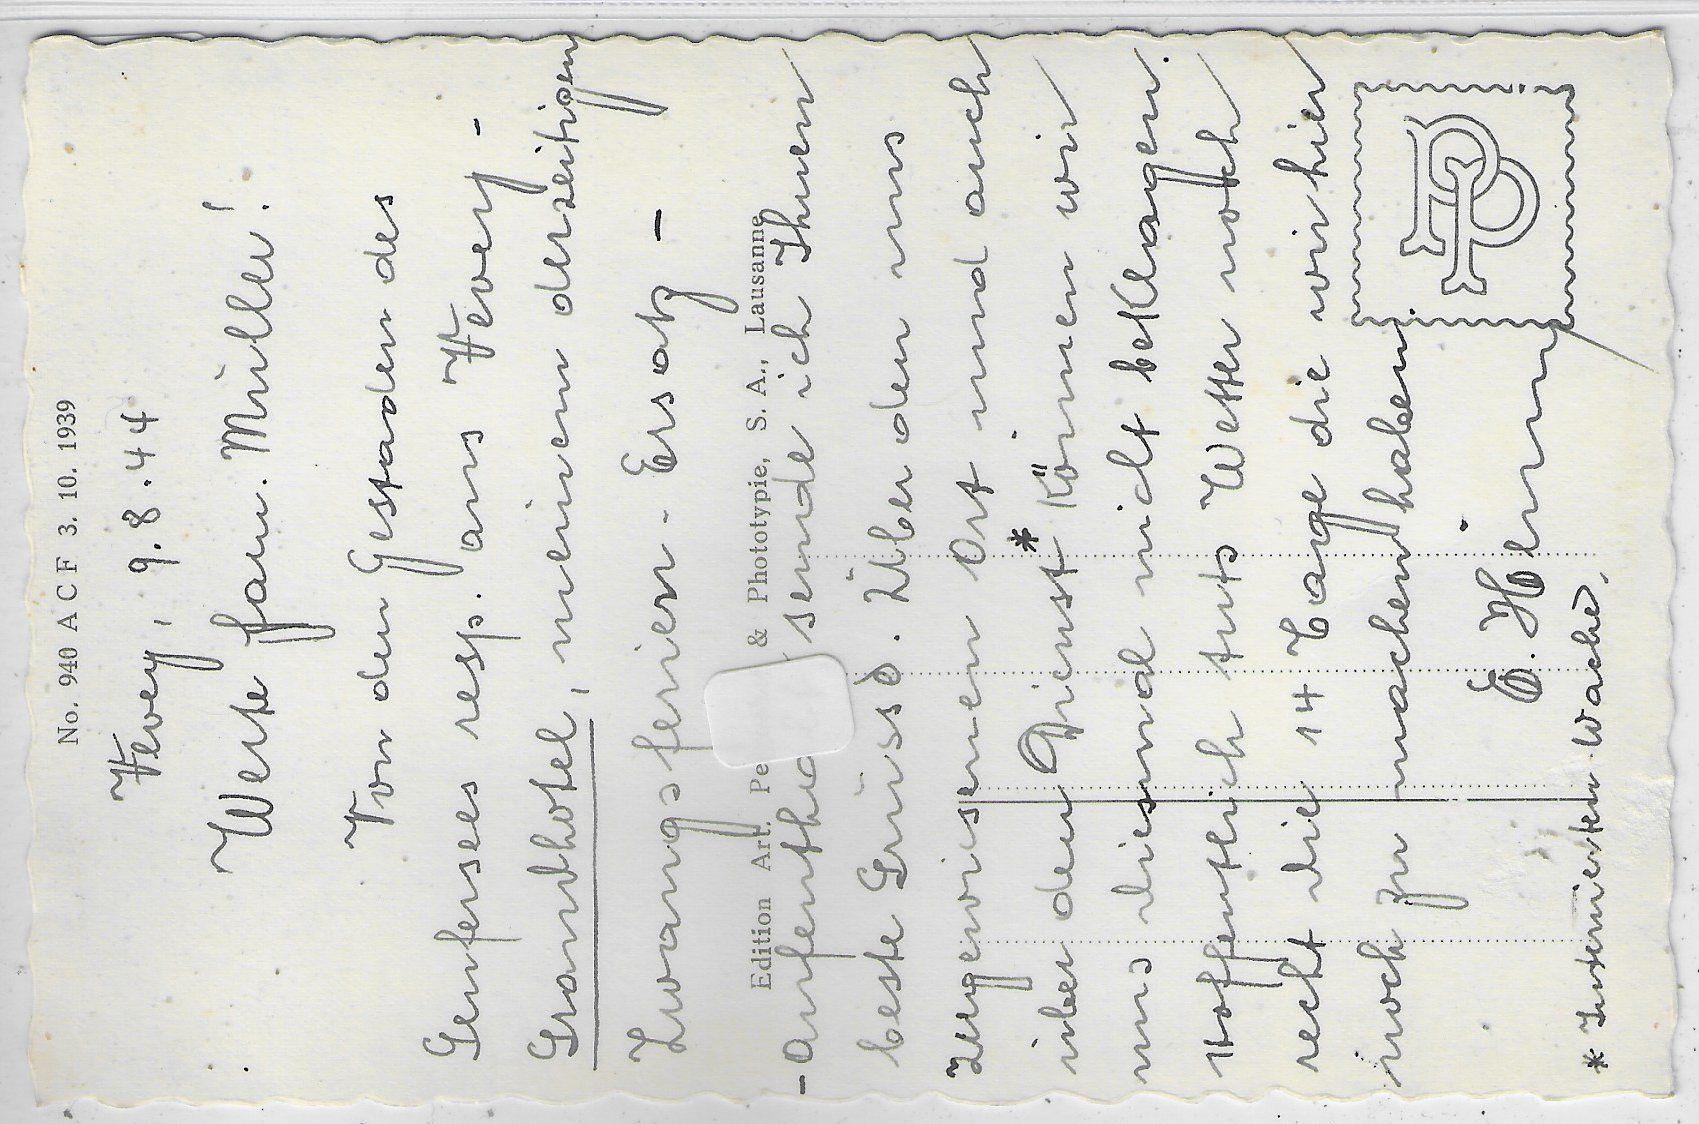 No. 940 A C F 3. 10. 1939
Vevey, 9.8.44
Werte fam. Müller!
Von den Gestaden des
Genfersees resp. aus Vevey -
Grandhotel, meinem derzeitigen
Zwangsferien - Ersatz -
Edition Art. Pe & Phototypie, S. A., Lausanne
- sende ich Ihnen
beste Grüsse. Über den uns
zugewiesenen Ort und auch
über den Dienst* können wir
uns diesmal nicht beklagen.
Hoffentlich tuts Wetter noch
recht die 14 Tage die wir hier
noch zu machen haben
E.
* Internierten-Wache.